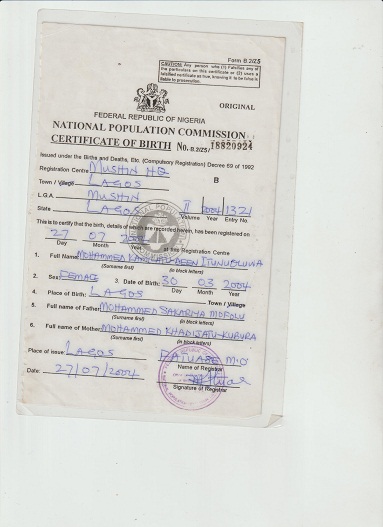 Form B.2/Z5
CAUTION: Any person who (1) Falsifies any of
the particulars on this certificate or (2) uses a
falsified certificate as true, knowing it to be false is
liable to prosecution.
ORIGINAL
FEDERAL REPUBLIC OF NIGERIA
NATIONAL POPULATION COMMISSION
CERTIFICATE OF BIRTH No. B.2/Z5/ 18820924
Issued under the Births and Deaths, Etc. (Compulsory Registration) Decree 69 of 1992
Registration Centre MUSHIN HQ
B
Town / Village LAGOS
L.G.A. MUSHIN
State LAGOS II 2004 1321
Volume Year Entry No.
This is to certify that the birth, details of which are recorded herein, has been registered on
27 07 2004 at this Registration Centre
Day Month Year
1. Full Name: MOHAMMED
(Surname first) (in block letters)
2. Sex: FEMALE 3. Date of Birth: 30 03 2004
Day Month Year
4. Place of Birth: LAGOS Town / Village
5. Full name of Father: MOHAMMED SAKARIHA
(Surname first) (in block letters)
6. Full name of Mother: MOHAMMED KHADIJATU-KUBURA
(Surname first) (in block letters)
Place of issue: LAGOS
Name of Registrar
Date: 27/07/2004
Signature of Registrar